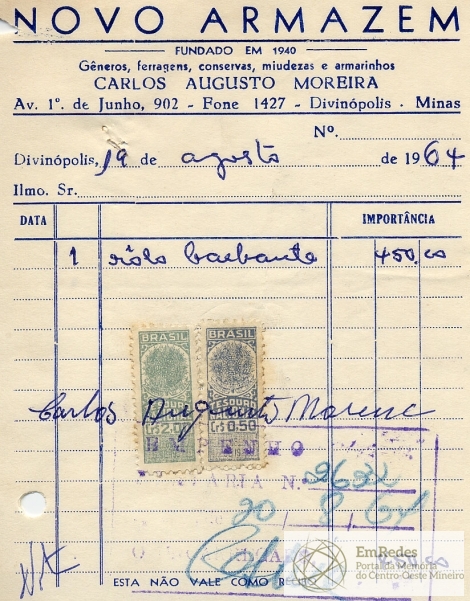 NOVO ARMAZEM
FUNDADO EM 1940
Gêneros, ferragens, conservas, miudezas e armarinhos
CARLOS AUGUSTO MOREIRA
Av. 1º. de Junho, 902 - Fone 1427 - Divinópolis - Minas
Nº.
Divinópolis, 19 de agosto de 1964
Ilmo. Sr.
DATA IMPORTÂNCIA
1 rôlo barbante 450,00
BRASIL BRASIL
TESOURO TESOURO
Cr$ 2,00 Cr$ 0,50
Carlos Augusto Moreira
EMPENHO
N. 9632
20 8 64
450,00
ESTA NÃO VALE COMO RECIBO
EmRedes
Portal da Memória
do Centro-Oeste Mineiro